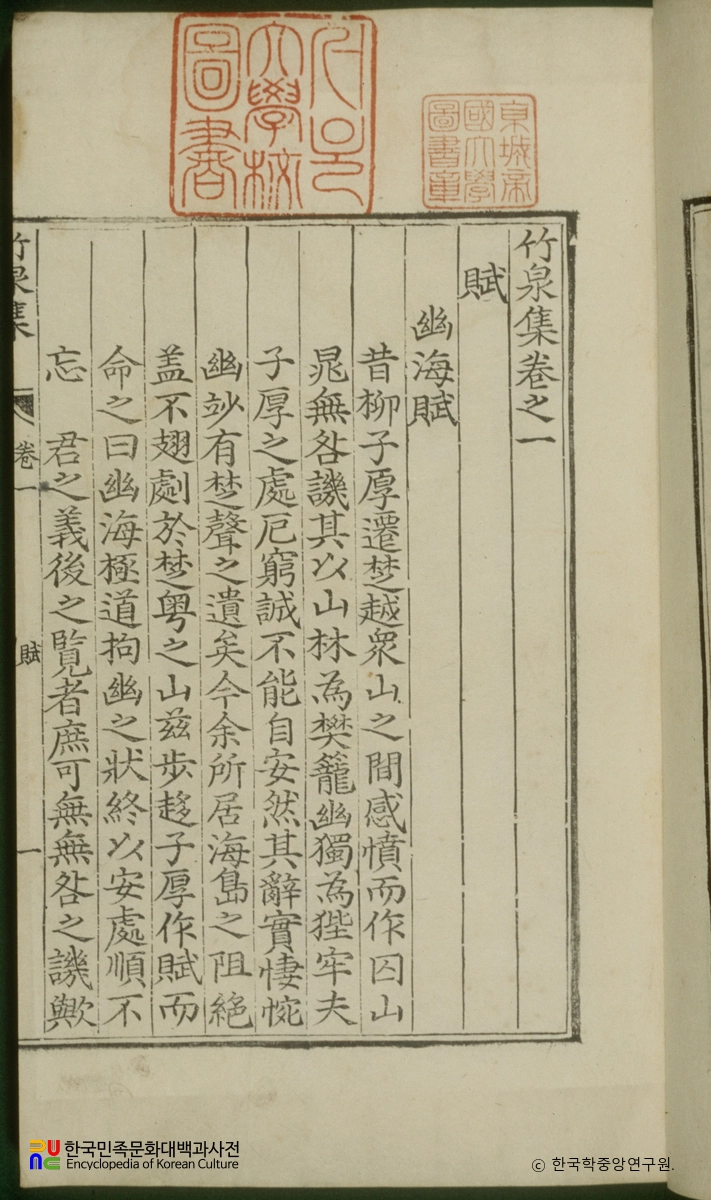 서울
大學校
圖書
京城帝
國大學
圖書章
竹泉集卷之一
賦
幽海賦
昔柳子厚遷椘越衆山之間感憤而作囚山
晁無咎譏其以山林為樊籠幽獨為狴牢夫
子厚之處厄窮誠不能自安然其辭實悽惋
幽竗有椘聲之遺矣今余所居海島之阻絶
盖不翅劇於椘粤之山兹步趍子厚作賦而
命之曰幽海極道拘幽之狀終以安處順不
忘 君之義後之覽者庶可無無咎之譏歟
竹泉集 卷一 賦 一
한국민족문화대백과사전
Encyclopedia of Korean Culture
ⓒ 한국학중앙연구원.